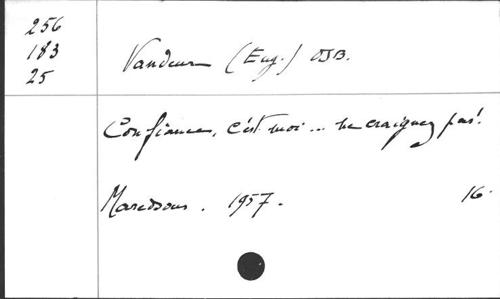 256
183
25
Vandeur (Eug.) OSB.
Confiance, c'est moi... ne craignez pas!
Maredsous. 1957. 16.